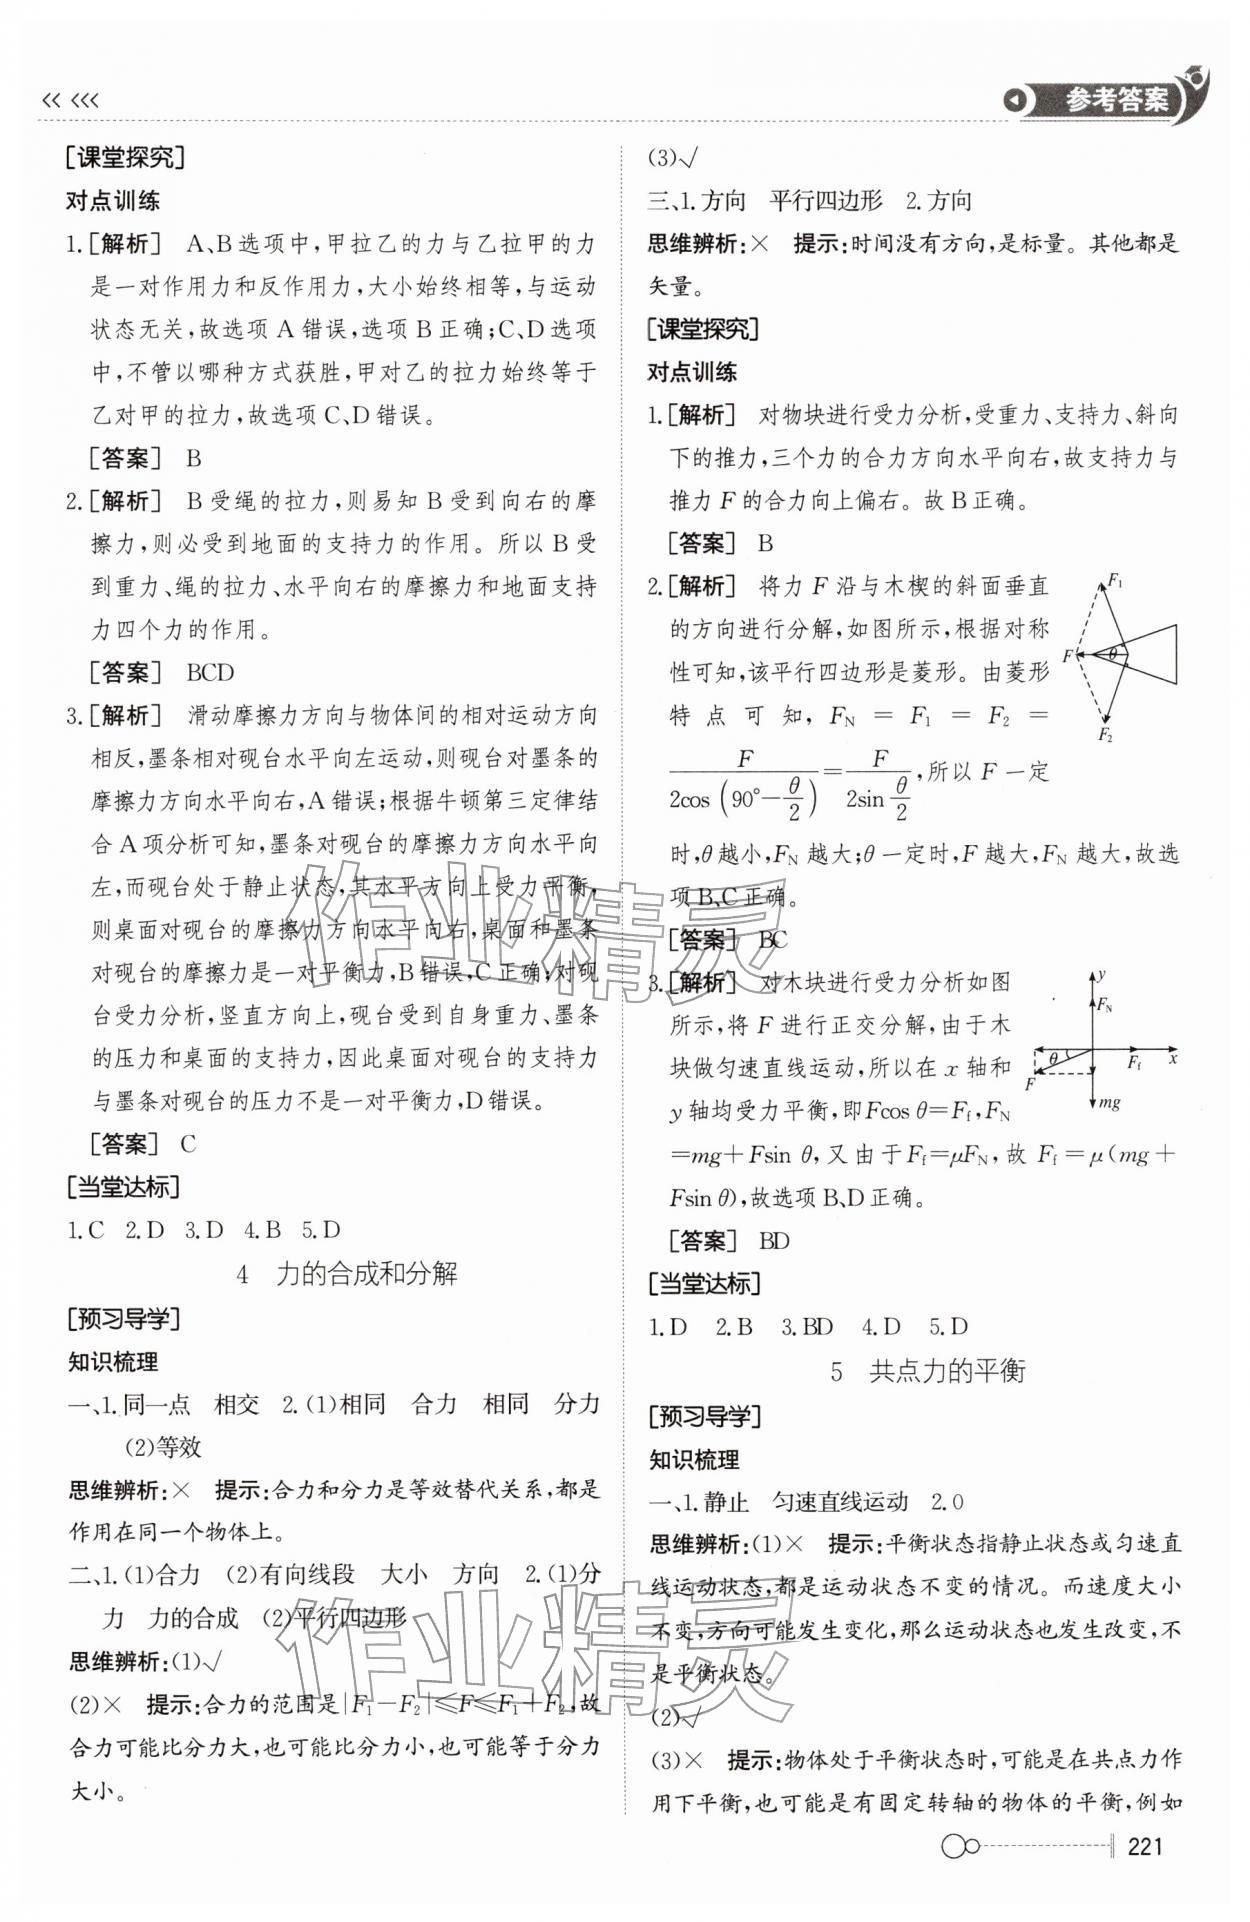 参考答案
[课堂探究]
对点训练
1.[解析] A、B选项中,甲拉乙的力与乙拉甲的力
是一对作用力和反作用力,大小始终相等,与运动
状态无关,故选项A错误,选项B正确;C、D选项
中,不管以哪种方式获胜,甲对乙的拉力始终等于
乙对甲的拉力,故选项C、D错误。
[答案] B
2.[解析] B受绳的拉力,则易知B受到向右的摩
擦力,则必受到地面的支持力的作用。所以B受
到重力、绳的拉力、水平向右的摩擦力和地面支持
力四个力的作用。
[答案] BCD
3.[解析] 滑动摩擦力方向与物体间的相对运动方向
相反,墨条相对砚台水平向左运动,则砚台对墨条的
摩擦力方向水平向右,A错误;根据牛顿第三定律结
合A项分析可知,墨条对砚台的摩擦力方向水平向
左,而砚台处于静止状态,其水平方向上受力平衡,
则桌面对砚台的摩擦力方向水平向右,桌面和墨条
对砚台的摩擦力是一对平衡力,B错误,C正确;对砚
台受力分析,竖直方向上,砚台受到自身重力、墨条
的压力和桌面的支持力,因此桌面对砚台的支持力
与墨条对砚台的压力不是一对平衡力,D错误。
[答案] C
[当堂达标]
1.C 2.D 3.D 4.B 5.D
4 力的合成和分解
[预习导学]
知识梳理
一、1.同一点 相交 2.(1)相同 合力 相同 分力
(2)等效
思维辨析:× 提示:合力和分力是等效替代关系,都是
作用在同一个物体上。
二、1.(1)合力 (2)有向线段 大小 方向 2.(1)分
力 力的合成 (2)平行四边形
思维辨析:(1)√
(2)× 提示:合力的范围是|F₁-F₂|≤F≤F₁+F₂,故
合力可能比分力大,也可能比分力小,也可能等于分力
大小。
(3)√
三、1.方向 平行四边形 2.方向
思维辨析:× 提示:时间没有方向,是标量。其他都是
矢量。
[课堂探究]
对点训练
1.[解析] 对物块进行受力分析,受重力、支持力、斜向
下的推力,三个力的合力方向水平向右,故支持力与
推力F的合力向上偏右。故B正确。
[答案] B
2.[解析] 将力F沿与木楔的斜面垂直
的方向进行分解,如图所示,根据对称
性可知,该平行四边形是菱形。由菱形
特点可知,F_N=F₁=F₂=
F/(2cos(90°-θ/2))=F/(2sin θ/2),所以F一定
时,θ越小,F_N越大;θ一定时,F越大,F_N越大,故选
项B、C正确。
[答案] BC
F₁
F
θ
F₂
3.[解析] 对木块进行受力分析如图
所示,将F进行正交分解,由于木
块做匀速直线运动,所以在x轴和
y轴均受力平衡,即Fcos θ=F_f,F_N
=mg+Fsin θ,又由于F_f=μF_N,故F_f=μ(mg+
Fsin θ),故选项B、D正确。
[答案] BD
y
F_N
θ
F_f
x
F
mg
[当堂达标]
1.D 2.B 3.BD 4.D 5.D
5 共点力的平衡
[预习导学]
知识梳理
一、1.静止 匀速直线运动 2.0
思维辨析:(1)× 提示:平衡状态指静止状态或匀速直
线运动状态,都是运动状态不变的情况。而速度大小
不变,方向可能发生变化,那么运动状态也发生改变,不
是平衡状态。
(2)√
(3)× 提示:物体处于平衡状态时,可能是在共点力作
用下平衡,也可能是有固定转轴的物体的平衡,例如
221
作业精灵
作业精灵